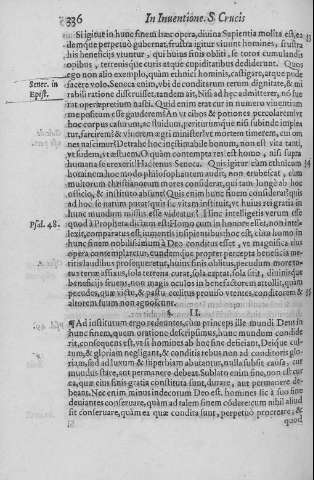 336 In Inuentione. S. Crucis
Si igitur in hunc finem hæc opera, diuina Sapientia molita est, ea
demque perpetuò gubernat, frustra igitur viuunt homines, frustra
his beneficijs vtuntur, qui huius finis obliti, se totos cumulandis
opibus, terrenisque curis atque cupiditatibus dediderunt. Quos
ego non alio exemplo, quàm ethnici hominis, castigare, atque pude
Senec. in
Epist.
facere volo. Seneca enim, vbi de conditarum rerum dignitate, & mi
rabili ratione disseruisset, tandem ait, Nisi ad hæc admitterer, nō fue
rat operæpretium nasci. Quid enim erat cur in numero viuentium
me positum esse gauderem? An vt cibos & potiones percolarem? vt
hoc corpus casurum, ac fluidum, periturumque nisi subinde implea
tur, sarcirem? & viuerem ægri minister? vt mortem timerem, cui om
nes nascimur? Detrahe hoc inestimabile bonum, non est vita tanti,
vt sudem, vt æstuem. O quàm contempta res est homo, nisi supra
humana se erexerit. Hactenus Seneca. Quis igitur cùm ethnicum
hominem hoc modo philosophantem audit, non erubescat, cùm
multorum christianorum mores considerat, qui tam longè ab hoc
officio, & instituto absunt? Quis enim hunc finem considerat? quis
ad hoc se natum putat? quis ita vitam instituit, vt huius rei gratia in
hunc mundum missus esse videatur? Hinc intelligetis verum esse
Psal. 48.
quod à Propheta dictum est: Homo cùm in honore esset, non intel-
lexit, comparatus est iumentis insipientibus: hoc est, cùm homo in
hunc finem nobilissimum à Deo conditus esset, vt magnifica eius
opera contemplaretur, eundemque propter percepta beneficia me-
ritis laudibus prosequeretur, huius finis oblitus, pecudum more
terræ affixus, sola terrena curat, sola captat, sola sitit, diuinisque
beneficijs fruens, non magis oculos in benefactorem attollit, quàm
pecudes, quæ victu, & pastu
altorem suum non agnoscunt.
II.
¶ Ad institutum ergo redeuntes, cùm princeps ille mundi Deus in
hunc finem, quem oratione descripsimus, hunc mundum condide
rit, consequens est, vt si homines ab hoc fine deficiant, Deique cul-
tum, & gloriam negligant, & conditis rebus non ad conditoris glo-
riam, sed ad luxum & superbiam abutantur, nulla subsit causa, cur
mundus stare, aut permanere debeat. Sublato enim fine, non est cur
ea, quæ eius finis gratia constituta sunt, durare, aut permanere de-
beant. Nec enim minus indecorum Deo est, homines sic à suo fine
deuiantes conseruare, quàm ad talem finem cōdere: cùm nihil aliud
sit conseruare, quàm ea quæ condita sunt, perpetuò procreare, &
quod